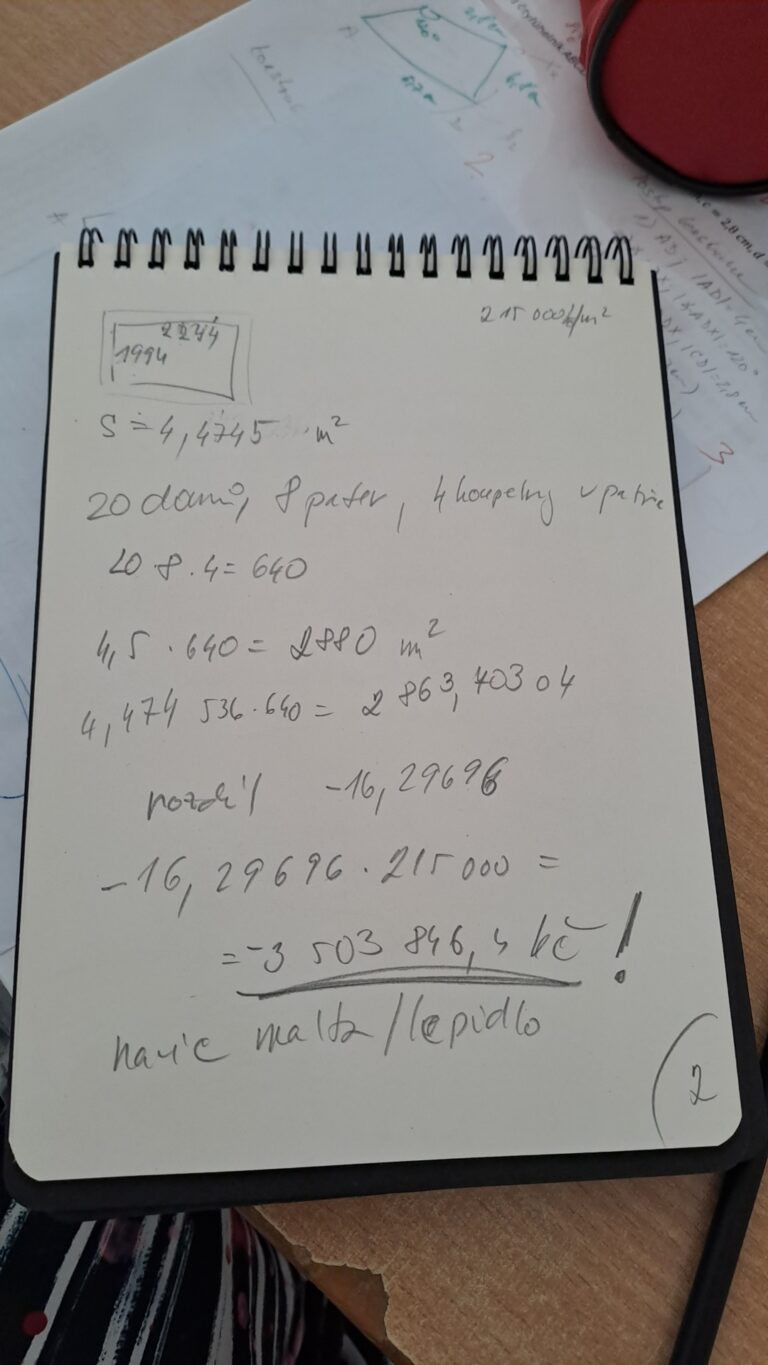 215 000 kč/m²
2244
1994
S ≐ 4,4745 m²
20 domů, 8 pater, 4 koupelny v patře
20 8 . 4 = 640
4,5 . 640 = 2880 m²
4,474 536 . 640 = 2 863,703 04
rozdíl -16,29696
-16,29696 . 215 000 =
= -3 503 846,4 kč !
navíc malta/lepidlo
2
A
120°
2.
3
= 2,8 cm, d =